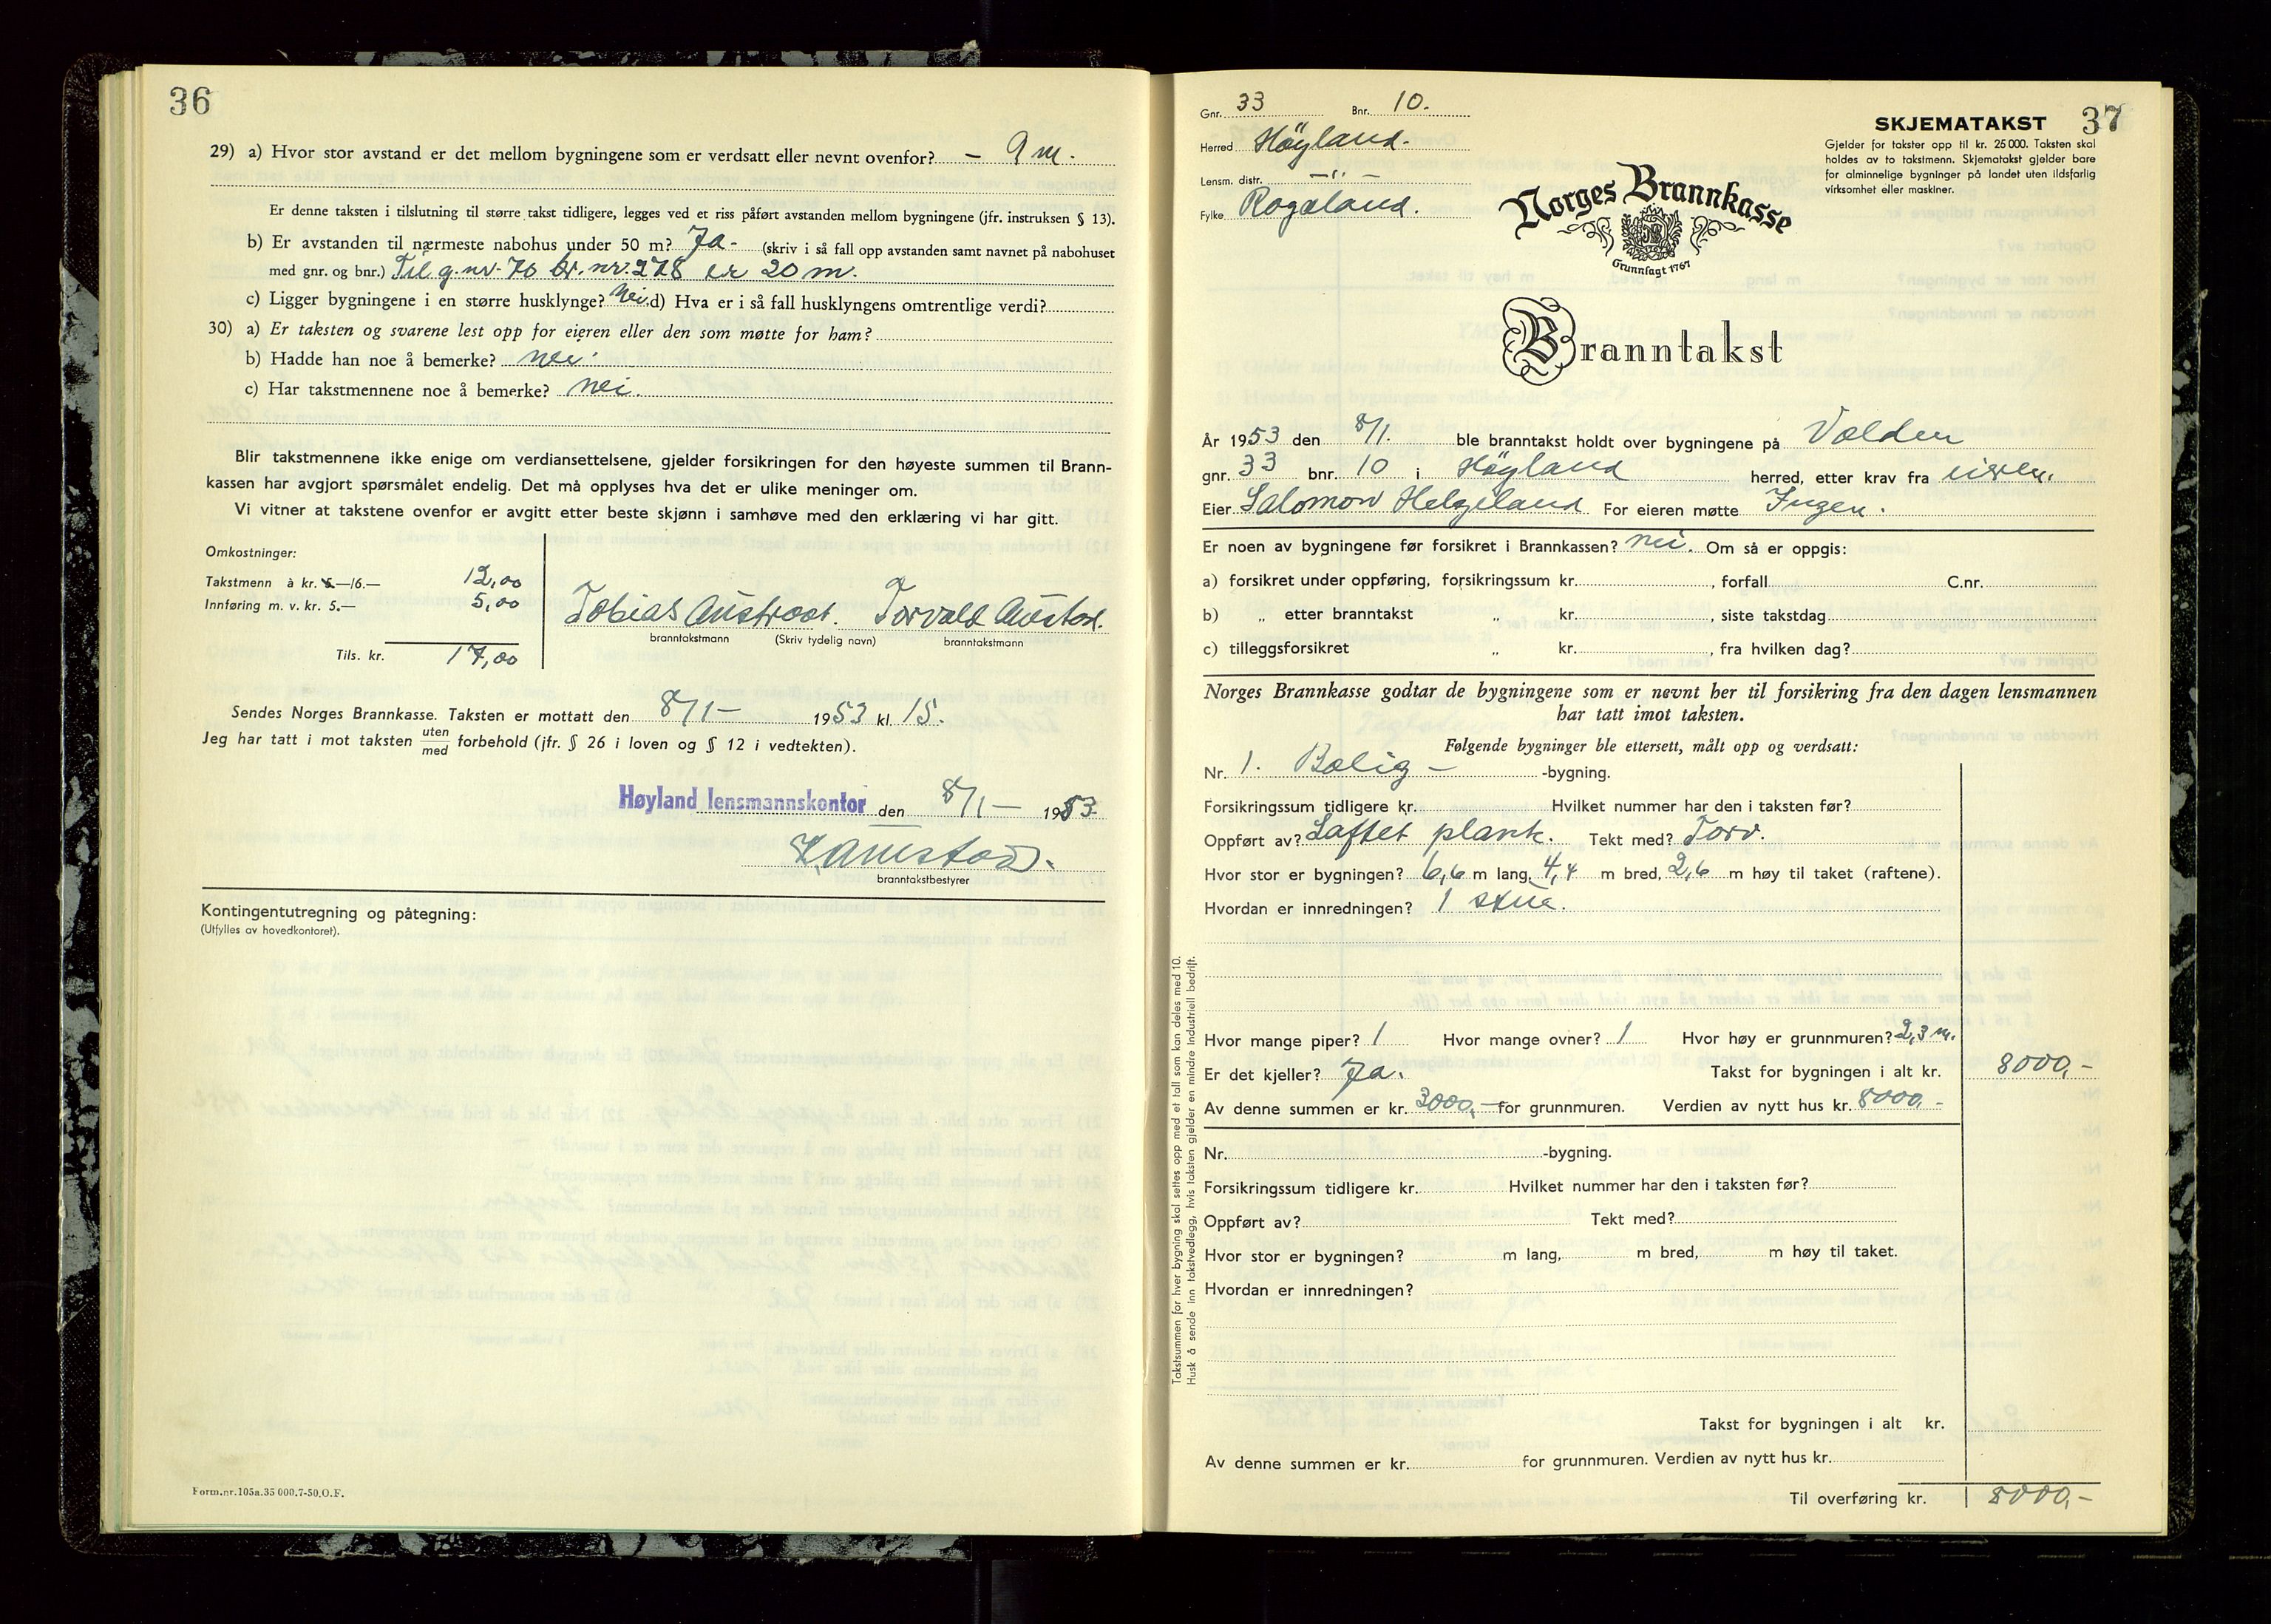 36
29) a) Hvor stor avstand er det mellom bygningene som er verdsatt eller nevnt ovenfor? – 9 m.
Er denne taksten i tilslutning til større takst tidligere, legges ved et riss påført avstanden mellom bygningene (jfr. instruksen § 13).
b) Er avstanden til nærmeste nabohus under 50 m? Ja - (skriv i så fall opp avstanden samt navnet på nabohuset
med gnr. og bnr.) Til g.nr. 70 br.nr. 278 er 20 m.
c) Ligger bygningene i en større husklynge? Nei. d) Hva er i så fall husklyngens omtrentlige verdi?
30) a) Er taksten og svarene lest opp for eieren eller den som møtte for ham?
b) Hadde han noe å bemerke? nei.
c) Har takstmennene noe å bemerke? nei.
Blir takstmennene ikke enige om verdiansettelsene, gjelder forsikringen for den høyeste summen til Brann-
kassen har avgjort spørsmålet endelig. Det må opplyses hva det er ulike meninger om.
Vi vitner at takstene ovenfor er avgitt etter beste skjønn i samhøve med den erklæring vi har gitt.
Omkostninger:
Takstmenn à kr. 5.—/6.— 12,00
Innføring m. v. kr. 5.— 5,00
Tils. kr. 17,00
Tobias Austrost. Torvald Austad.
branntakstmann (Skriv tydelig navn) branntakstmann
Sendes Norges Brannkasse. Taksten er mottatt den 8/1 – 1953 kl. 15.
Jeg har tatt i mot taksten uten/med forbehold (jfr. § 26 i loven og § 12 i vedtekten).
Høyland lensmannskontor den 8/1 – 1953.
branntakstbestyrer
Kontingentutregning og påtegning:
(Utfylles av hovedkontoret).
Form.nr. 105a. 35 000. 7-50. O. F.
Gnr. 33 Bnr. 10.
Herred Höyland.
Lensm. distr. —"—
Fylke Rogaland.
SKJEMATAKST 37
Gjelder for takster opp til kr. 25 000. Taksten skal
holdes av to takstmenn. Skjematakst gjelder bare
for alminnelige bygninger på landet uten ildsfarlig
virksomhet eller maskiner.
Norges Brannkasse
Grunnlagt 1767
Branntakst
År 1953 den 8/1. ble branntakst holdt over bygningene på Volden
gnr. 33 bnr. 10 i Höyland herred, etter krav fra eieren.
Eier Salomon Helgeland For eieren møtte Ingen.
Er noen av bygningene før forsikret i Brannkassen? nei. Om så er oppgis:
a) forsikret under oppføring, forsikringssum kr. , forfall C.nr.
b) „ etter branntakst „ kr. , siste takstdag
c) tilleggsforsikret „ kr. , fra hvilken dag?
Norges Brannkasse godtar de bygningene som er nevnt her til forsikring fra den dagen lensmannen
har tatt imot taksten.
Følgende bygninger ble ettersett, målt opp og verdsatt:
Nr. 1. Bolig – -bygning.
Forsikringssum tidligere kr. Hvilket nummer har den i taksten før?
Oppført av? Laftet plank. Tekt med? Torv.
Hvor stor er bygningen? 6,6 m lang, 4,4 m bred, 2,6 m høy til taket (raftene).
Hvordan er innredningen? 1 stue.
Hvor mange piper? 1 Hvor mange ovner? 1 Hvor høy er grunnmuren? 2,3 m.
Er det kjeller? Ja. Takst for bygningen i alt kr. 8000,-
Av denne summen er kr. 3000,- for grunnmuren. Verdien av nytt hus kr. 8000,-
Nr. -bygning.
Forsikringssum tidligere kr. Hvilket nummer har den i taksten før?
Oppført av? Tekt med?
Hvor stor er bygningen? m lang, m bred, m høy til taket.
Hvordan er innredningen?
Takst for bygningen i alt kr.
Av denne summen er kr. for grunnmuren. Verdien av nytt hus kr.
Til overføring kr. 8000,-
Takstsummen for hver bygning skal settes opp med et tall som kan deles med 10.
Husk å sende inn takstvedlegg, hvis taksten gjelder en mindre industriell bedrift.